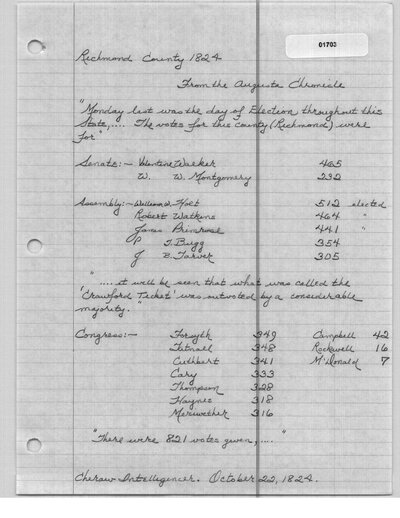 01703
Richmond County 1824
From the Augusta Chronicle
"Monday last was the day of Election throughout this
State,.... The votes for this county (Richmond) were
for"
Senate:- Valentine Walker 465
W. W. Montgomery 232
Assembly:- William W. Holt 512 elected
Robert Watkins 464 "
James Primrose 441 "
P T. Bugg 354
J B. Tarver 305
" ....it will be seen that what was called the
'Crawford Ticket' was outvoted by a considerable
majority."
Congress:- Forsyth 349 Campbell 42
Tatnall 348 Rockwell 16
Cuthbert 341 McDonald 7
Cary 333
Thompson 328
Haynes 318
Meriwether 316
"There were 821 votes given,.... "
Cheraw Intelligencer. October 22, 1824.